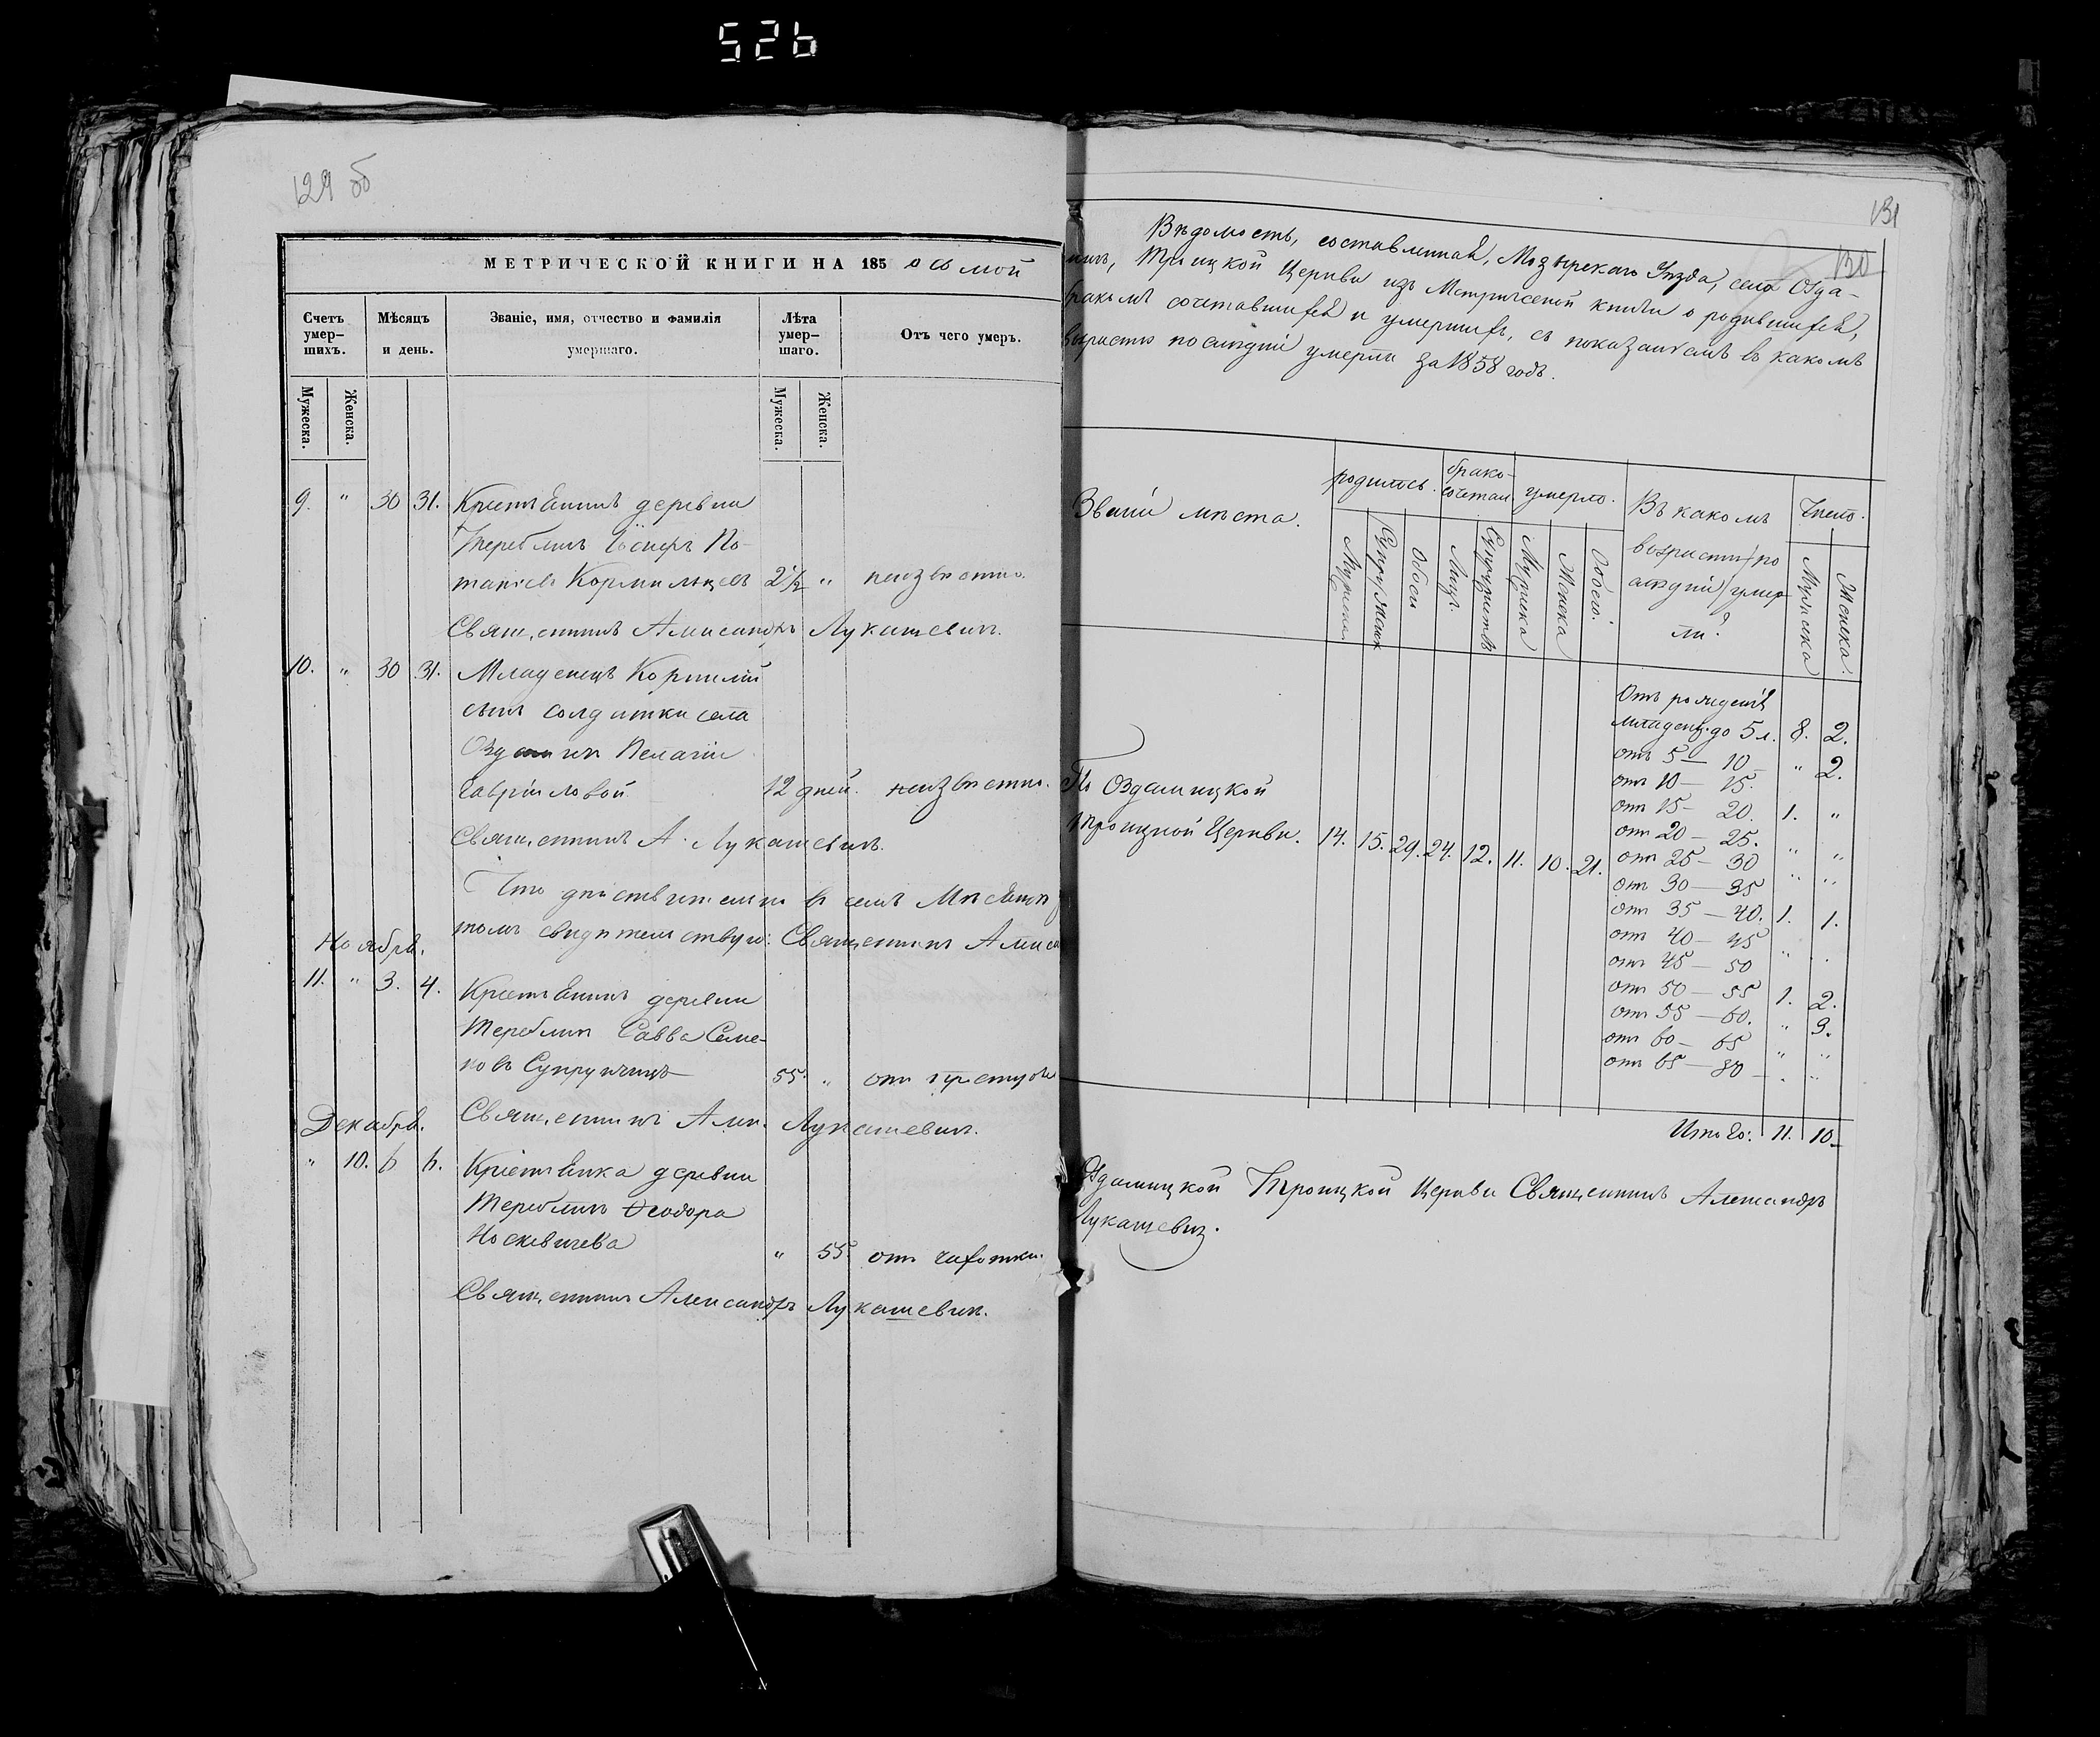 526
129 об
МЕТРИЧЕСКОЙ КНИГИ НА 185 осьмой
Счетъ умер-шихъ. Мѣсяцъ и день. Званіе, имя, отчество и фамилія умершаго. Лѣта умер-шаго. Отъ чего умеръ.
Мужеска. Женска. Мужеска. Женска.
9. " 30 31. Крестьянинъ деревни
Теребличъ Іосифъ По-
тапіевъ Кормильцевъ 2½ " неизвѣстно.
Священникъ Александръ Лукашевичъ.
10. " 30 31. Младенецъ Корнилій
сынъ солдатки села
Пелагіи
Гавріиловой 12 дней. неизвѣстно.
Священникъ А. Лукашевичъ.
Что дѣйствительно въ семъ Мѣсяцѣ
томъ свидѣтельствую: Священникъ Алекса
Ноябрь.
11. " 3. 4. Крестьянинъ деревни
Тереблич Савва Семе-
новъ Супрунчикъ 55. " отъ простуды
Священникъ Алек. Лукашевичъ.
Декабрь.
" 10. 6 6. Крестьянка деревни
Тереблич Ѳеодора
Носкевичева " 55. отъ чахотки.
Священникъ Александръ Лукашевичъ.
131
130
Вѣдомость, составленная, Мозырскаго Уѣзда, села Озда-
мичъ, Троицкой Церкви изъ Метрической книги о родившихся,
бракомъ сочетавшихся и умершихъ, съ показаніемъ въ какомъ
возрастѣ послѣдніе умерли за 1858 годъ.
Званіе мѣста. родилось. брако-сочетан. умерло. Въ какомъ возрастѣ по слѣдніе умер ли? Число.
Мужеска Обоего Лицъ. Супружествъ Мужеска Женска Обоего. Мужеска Женска.
По Оздамицкой
Троицкой Церкви. 14. 15. 29. 24. 12. 11. 10. 21.
Отъ рожденія
младенц. до 5 л. 8. 2.
отъ 5 — 10 — " 2.
отъ 10 — 15.
отъ 15 — 20. 1. "
отъ 20 — 25.
отъ 25 — 30 " "
отъ 30 — 35 " "
отъ 35 — 40. 1. 1.
отъ 40 — 45
отъ 45 — 50 " .
отъ 50 — 55 1. 2.
отъ 55 — 60. " 3.
отъ 60 — 65 " "
отъ 65 — 80 — . "
Итого: 11. 10.
Оздамицкой Троицкой Церкви Священникъ Александръ
Лукашевич.